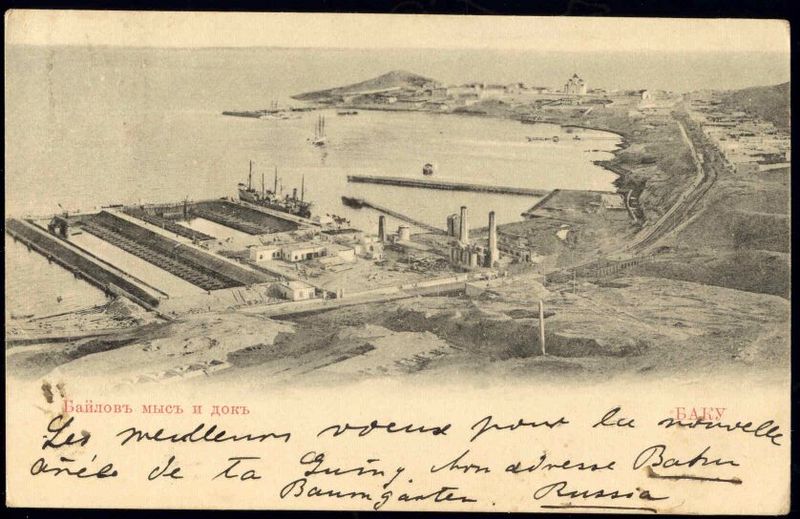 Байловъ мысъ и докъ
БАКУ
Les meilleurs voeux pour la nouvelle
de ta mon adresse Baku
Baumgarten. Russia